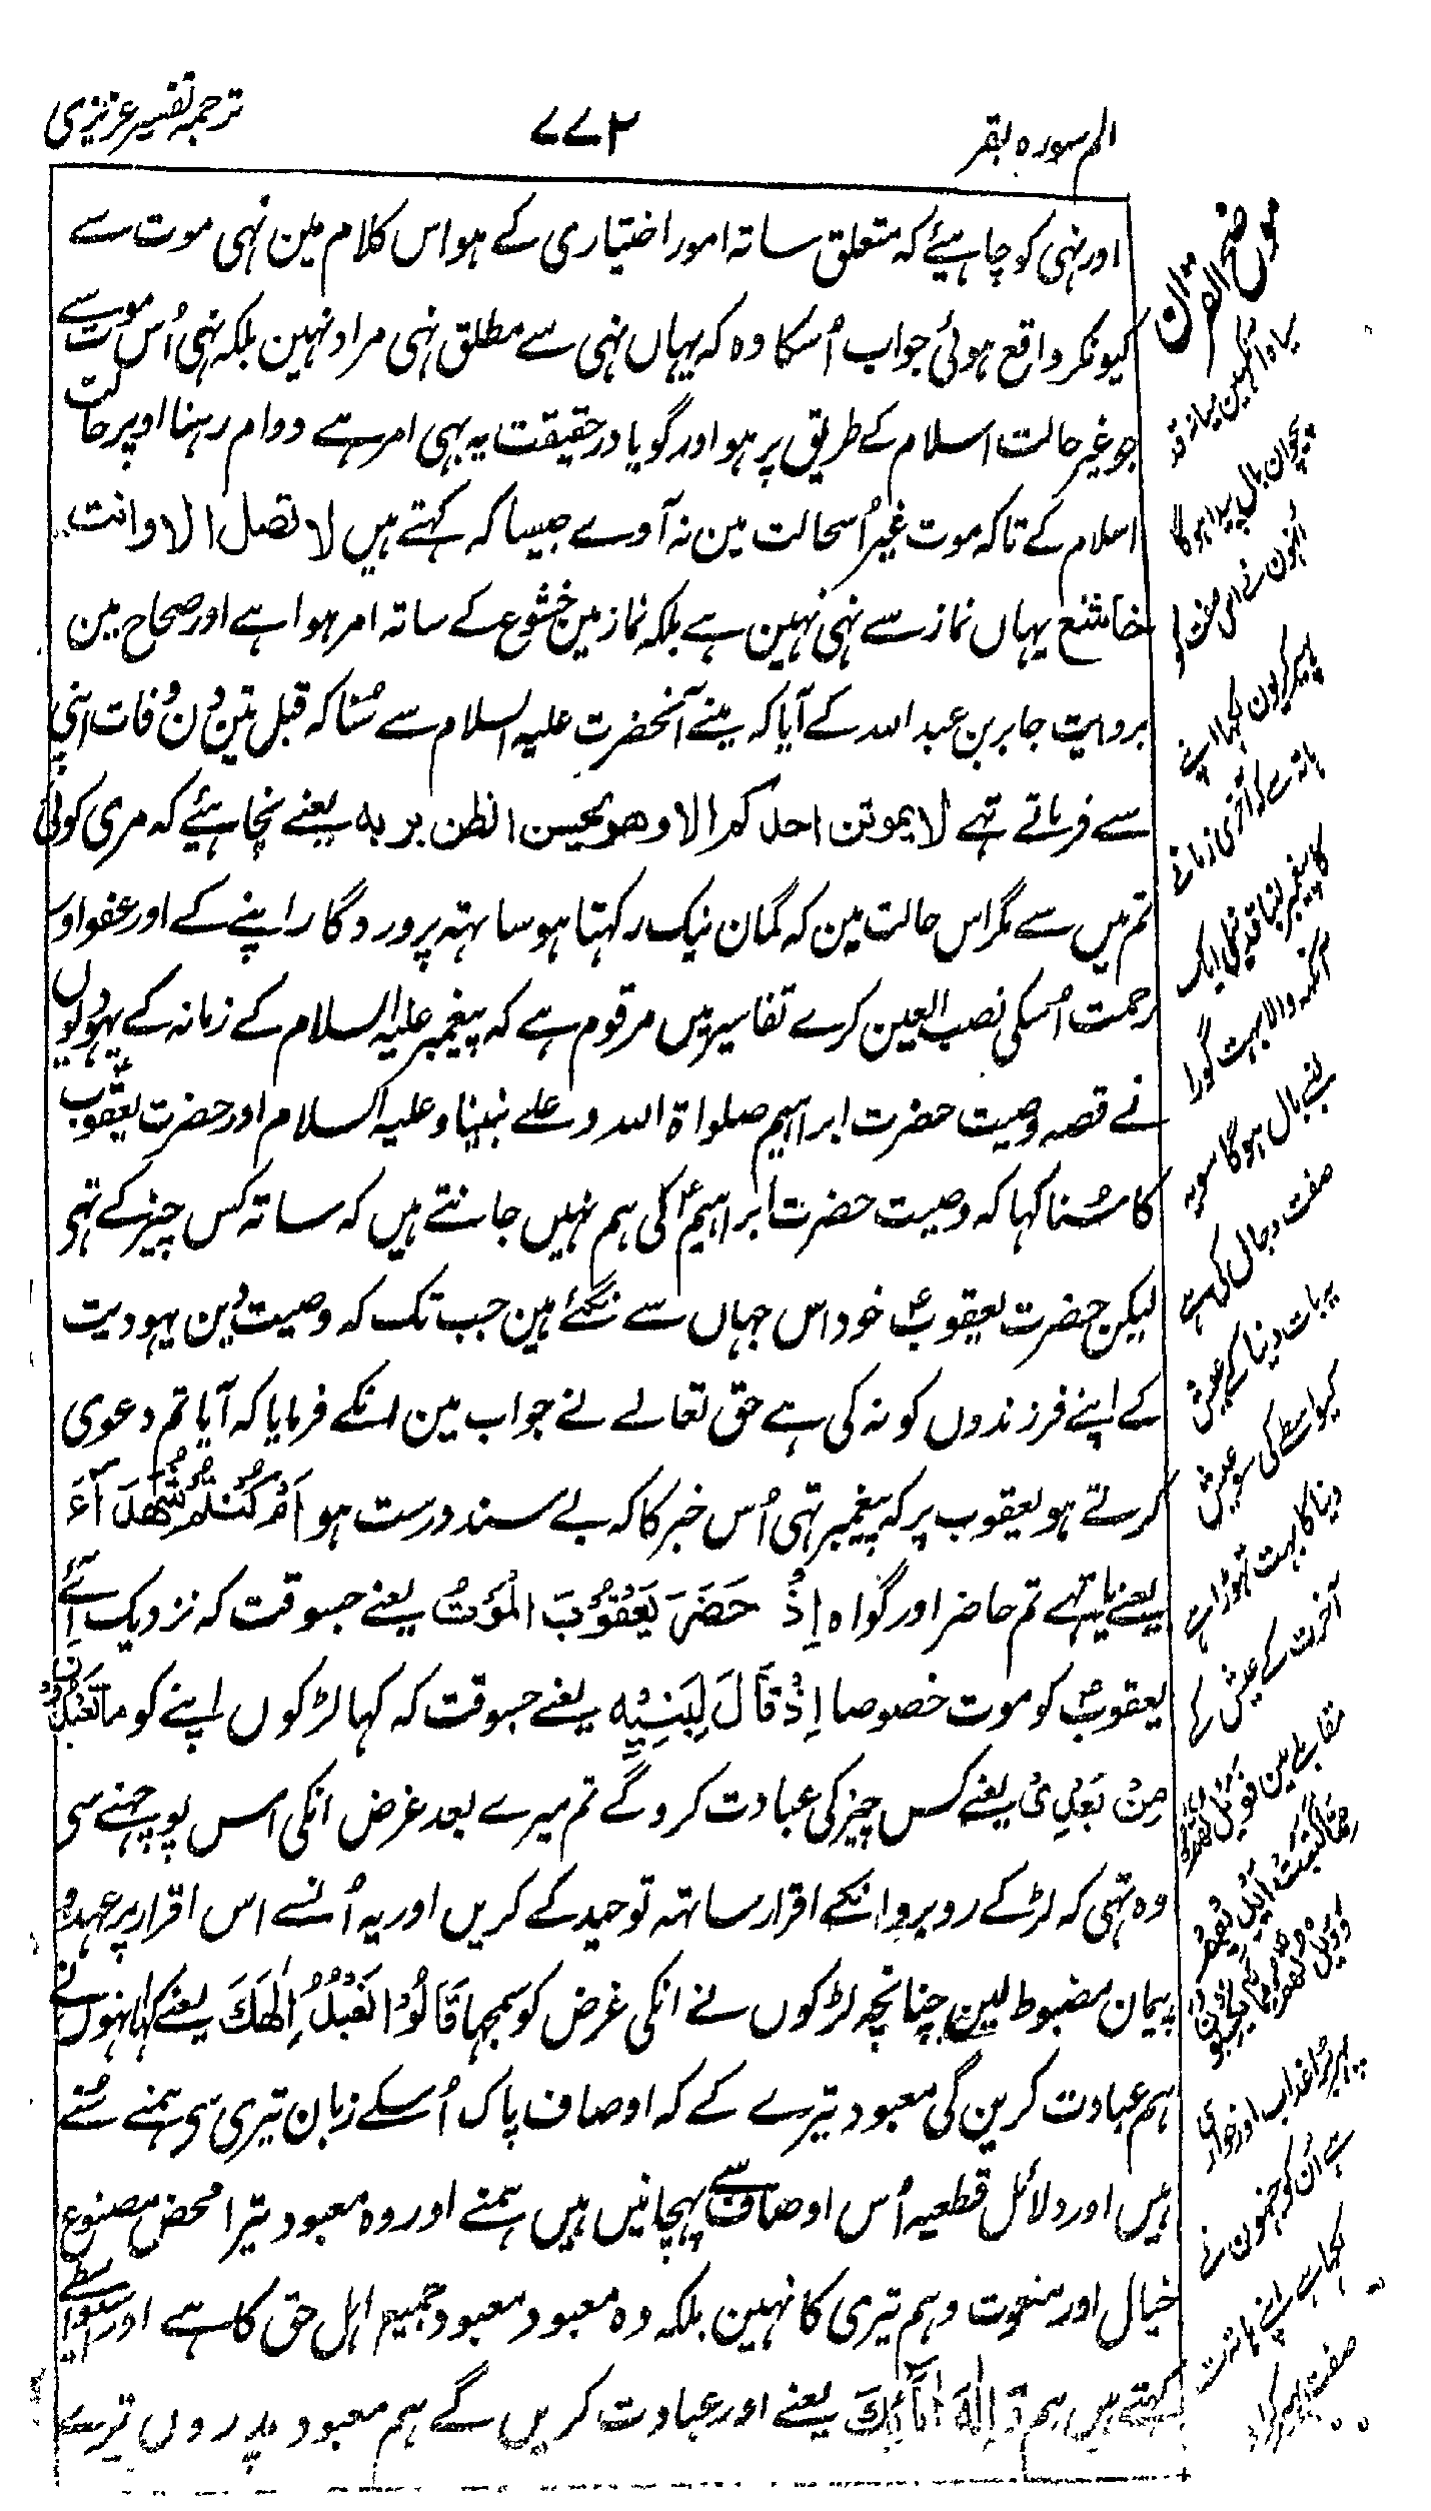 الم سورہ بقر
۷۷۲
ترجمہ تفسیر عزیزی
اور نہی کو چاہیئے کہ متعلق ساتہ امور اختیاری کے ہو اس کلام مین نہی موت سے
کیونکر واقع ہوئی جواب اُسکا وہ کہ یہاں نہی سے مطلق نہی مراد نہین بلکہ نہی اُس موت سے
جو غیر حالت اسلام کے طریق پر ہو اور گویا در حقیقت یہ بہی امر ہے دوام رہنا اوپر حالت
اسلام کے تاکہ موت غیر اُسحالت مین نہ آوے جیسا کہ کہتے ہیں لا تصل الا وانت
خاشع یہاں نماز سے نہی نہین ہے بلکہ نماز مین خشوع کے ساتہ امر ہوا ہے اور صحاح مین
بروایت جابر بن عبد اللہ کے آیا کہ مینے آنحضرت علیہ السلام سے سُنا کہ قبل تین دن وفات اپنی
سے فرماتے تہے لا یموتن احدکم الا وھو یحسن الظن بربہ یعنے نچاہئیے کہ مری کوئی
تم میں سے مگر اس حالت مین کہ گمان نیک رکہتا ہو ساہتہ پروردگار اپنے کے اور عفو اور
رحمت اُسکی نصب العین کرے تفاسیر میں مرقوم ہے کہ پیغمبر علیہ السلام کے زمانہ کے یہودیوں
نے قصہ وصیت حضرت ابراہیم صلواۃ اللہ و علے نبینا و علیہ السلام اور حضرت یعقوب
کا سُنا کہا کہ وصیت حضرت ابراہیم ؑ کی ہم نہیں جانتے ہیں کہ ساتہ کس چیز کے تہی
لیکن حضرت یعقوب ؑ خود اس جہاں سے نگئے ہین جب تک کہ وصیت دین یہودیت
کے اپنے فرزندوں کو نہ کی ہے حق تعالے نے جواب مین انکے فرمایا کہ آیا تم دعوی
کرتے ہو یعقوب پر کہ پیغمبر تہی اُس خبر کا کہ بے سند درست ہو اَمْ کُنْتُمْ شُھَدَآءَ
یعنے یا تہے تم حاضر اور گواہ اِذْ حَضَرَ یَعْقُوْبَ الْمَوْتُ یعنے جسوقت کہ نزدیک آئے
یعقوب ؑ کو موت خصوصا اِذْ قَالَ لِبَنِیْہِ یعنے جسوقت کہ کہا لڑکوں اپنے کو مَا تَعْبُدُوْنَ
مِنْ بَعْدِیْ یعنے کس چیز کی عبادت کرو گے تم میرے بعد غرض انکی اس پوچہنے سی
وہ تہی کہ لڑکے روبرو انکے اقرار ساہتہ توحید کے کریں اور یہ اُنسے اس اقرار پر عہد و
پیمان مضبوط لین چنانچہ لڑکوں نے انکی غرض کو سمجہا قَالُوْا نَعْبُدُ اِلٰھَكَ یعنے کہا انہوں نے
ہم عبادت کرین گی معبود تیرے کے کہ اوصاف پاک اُسکے زبان تیری سی ہمنے سُنے
ہیں اور دلائل قطعیہ اُس اوصاف سے پہچانیں ہیں ہمنے اور وہ معبود تیرا محض مصنوع
خیال اور منحوت وہم تیری کا نہین بلکہ وہ معبود معبود جمیع اہل حق کا ہے اور اسواسطے
کہتے ہیں ہم وَاِلٰہَ اٰبَآئِكَ یعنے اور عبادت کریں گے ہم معبود پدروں تیرے
موضح القرآن
پیچوان بال پیدا ہوگا
آنکہہ والا بہت گورا
صفت دجال کی ہے
دنیا کا بہت تہوڑا ہے
آخرت کے عیش کے